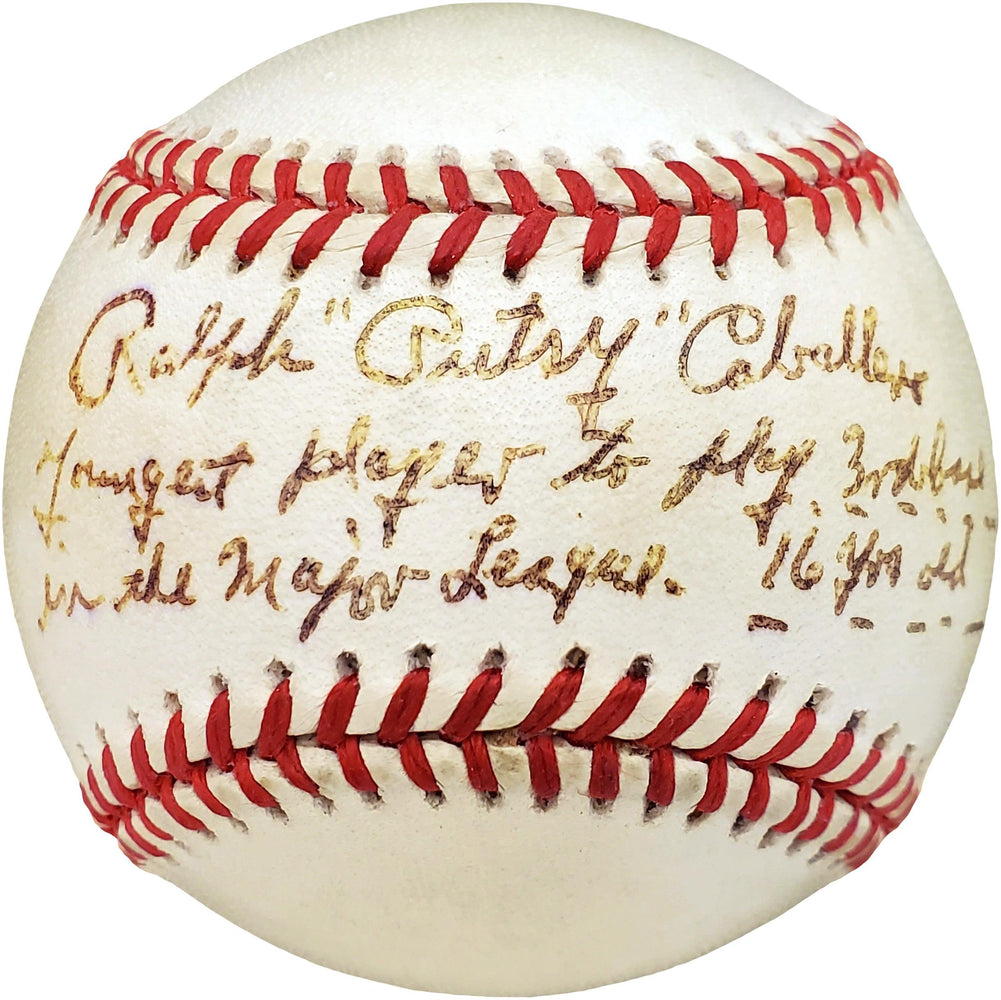 Ralph "Putsy" Caballero
Youngest player to play 3rd base
in the Major League. "16 yrs old"